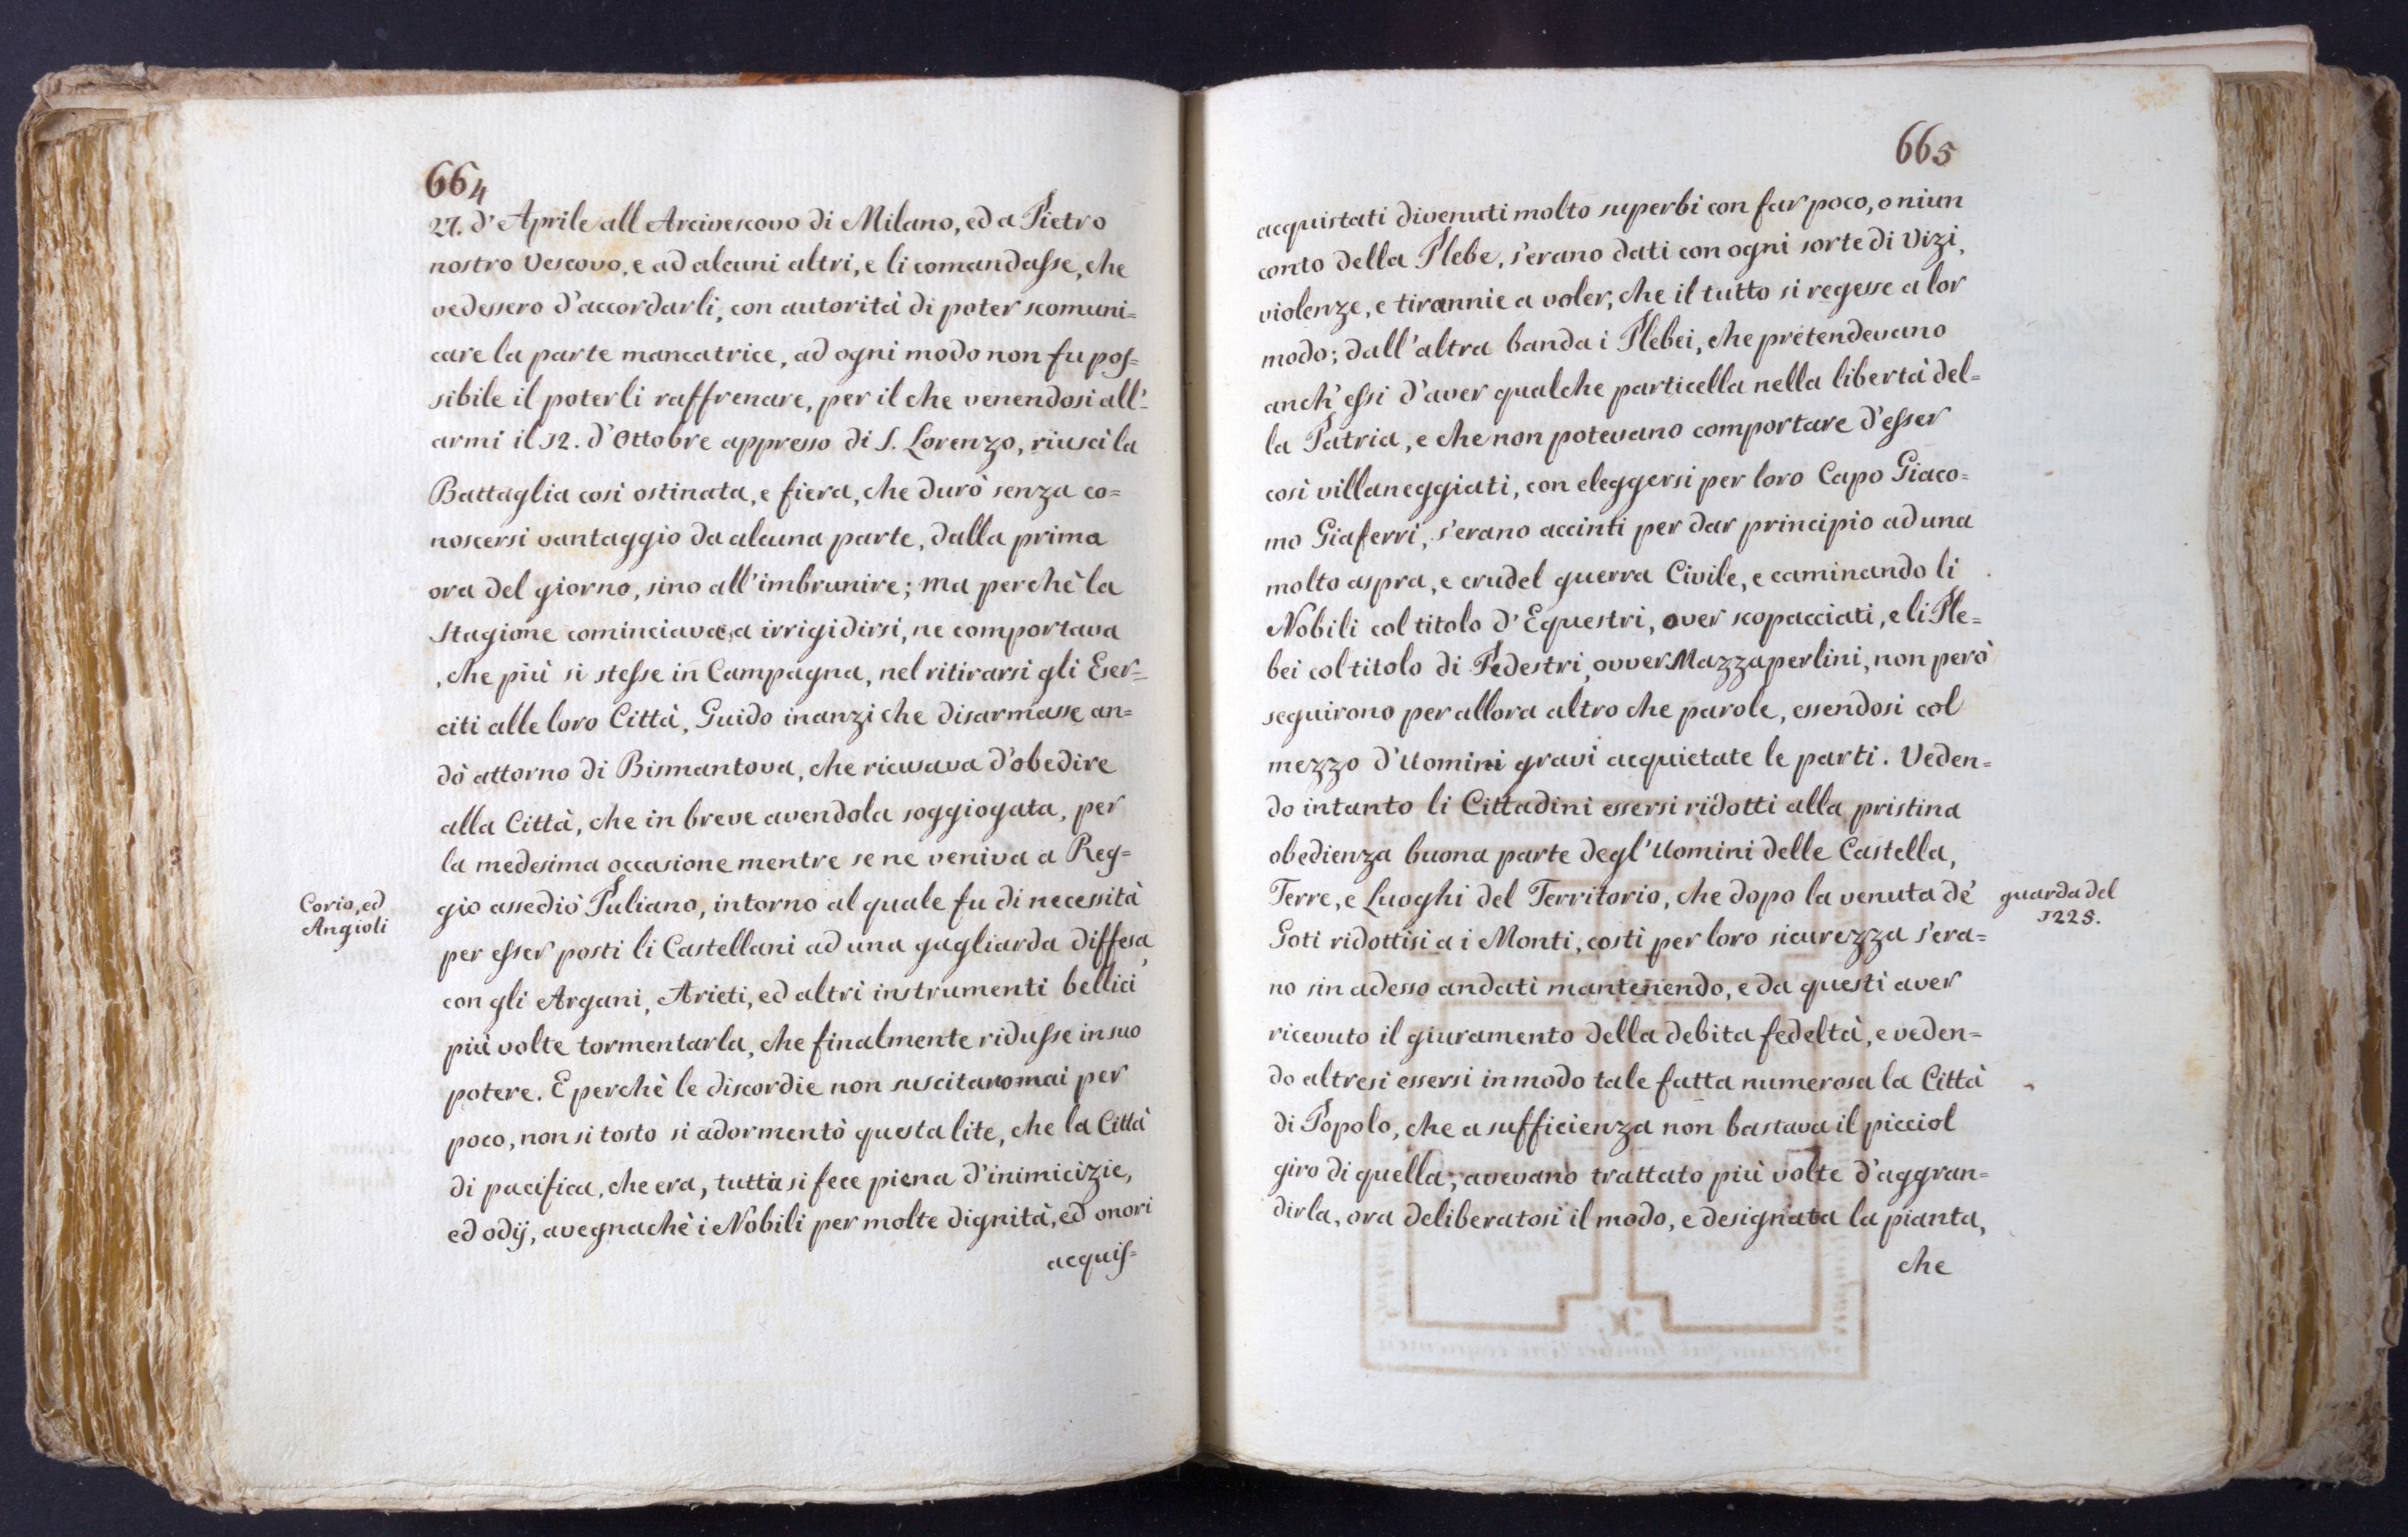 664
27. d'Aprile all Arcivescovo di Milano, ed a Pietro
nostro Vescovo, e ad alcuni altri, e li comandasse, che
vedessero d'accordarli, con autorità di poter scomuni=
care la parte mancatrice, ad ogni modo non fu pos=
sibile il poterli raffrenare, per il che venendosi all'=
armi il 12. d'Ottobre appresso di S. Lorenzo, riuscì la
Battaglia così ostinata, e fiera, che durò senza co=
noscersi vantaggio da alcuna parte, dalla prima
ora del giorno, sino all'imbrunire; ma perchè la
stagione cominciava a irrigidirsi, ne comportava
, che più si stesse in Campagna, nel ritirarsi gli Eser=
citi alle loro Città, Guido inanzi che disarmasse an=
dò attorno di Bismantova, che ricusava d'obedire
alla Città, che in breve avendola soggiogata, per
la medesima occasione mentre se ne veniva a Reg=
Corio, ed
Angioli
gio assediò Puliano, intorno al quale fu di necessità
per esser posti li Castellani ad una gagliarda diffesa,
con gli Argani, Arieti, ed altri instrumenti bellici
più volte tormentarla, che finalmente ridusse in suo
potere. E perchè le discordie non suscitano mai per
poco, non si tosto si adormentò questa lite, che la Città
di pacifica, che era, tutta si fece piena d'inimicizie,
ed odij, avegnachè i Nobili per molte dignità, ed onori
acquis=
665
acquistati divenuti molto superbi con far poco, o niun
conto della Plebe, s'erano dati con ogni sorte di Vizi,
violenze, e tirannie a voler, che il tutto si regesse a lor
modo; dall'altra banda i Plebei, che pretendevano
anch'essi d'aver qualche particella nella libertà del=
la Patria, e che non potevano comportare d'esser
così villaneggiati, con eleggersi per loro Capo Giaco=
mo Giaferri, s'erano accinti per dar principio ad una
molto aspra, e crudel guerra Civile, e caminando li
Nobili col titolo d'Equestri, over scopacciati, e li Ple=
bei col titolo di Pedestri, ovver Mazzaperlini, non però
seguirono per allora altro che parole, essendosi col
mezzo d'Uomini gravi acquietate le parti. Veden=
do intanto li Cittadini essersi ridotti alla pristina
obedienza buona parte degl'Uomini delle Castella,
Terre, e Luoghi del Territorio, che dopo la venuta de'
guarda del
1225.
Goti ridottisi a i Monti, costì per loro sicurezza s'era=
no sin adesso andati mantenendo, e da questi aver
ricevuto il giuramento della debita fedeltà, e veden=
do altresì essersi in modo tale fatta numerosa la Città
di Popolo, che a sufficienza non bastava il picciol
giro di quella; avevano trattato più volte d'aggran=
dirla, ora deliberatosi il modo, e designata la pianta,
che